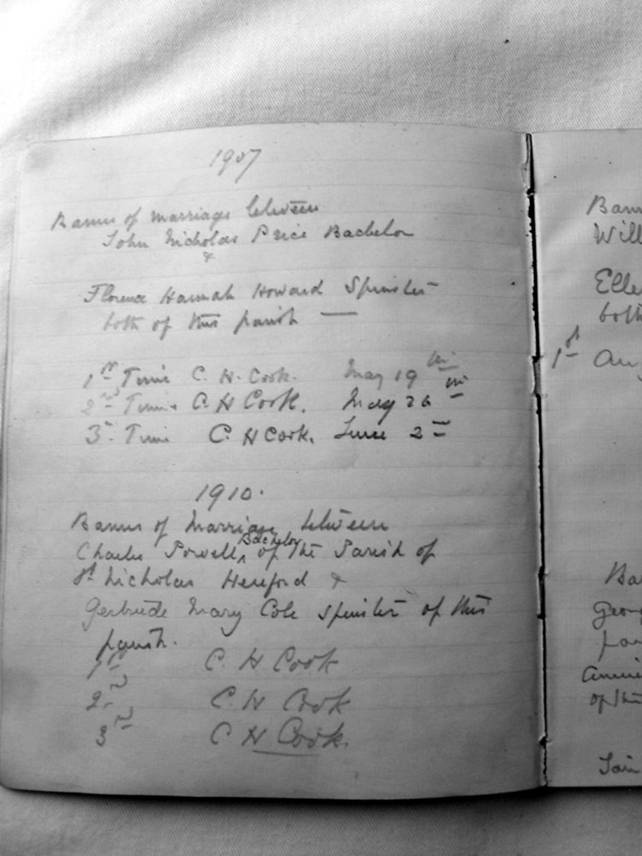 1907
Banns of marriage between
John Nicholas Price Bachelor
&
Florence Hannah Howard Spinster
both of this parish —
1st Time C. H. Cook. May 19th
2nd Time C H Cook. May 26th
3rd Time C H Cook. June 2nd
1910.
Banns of Marriage between
Charles Powell, Bachelor of the Parish of
St Nicholas Hereford &
Gertrude Mary Cole Spinster of this
parish.
1st C. H Cook
2nd C H Cook
3rd C H Cook.
Will
Elle
both
1st Au
Geor
of th